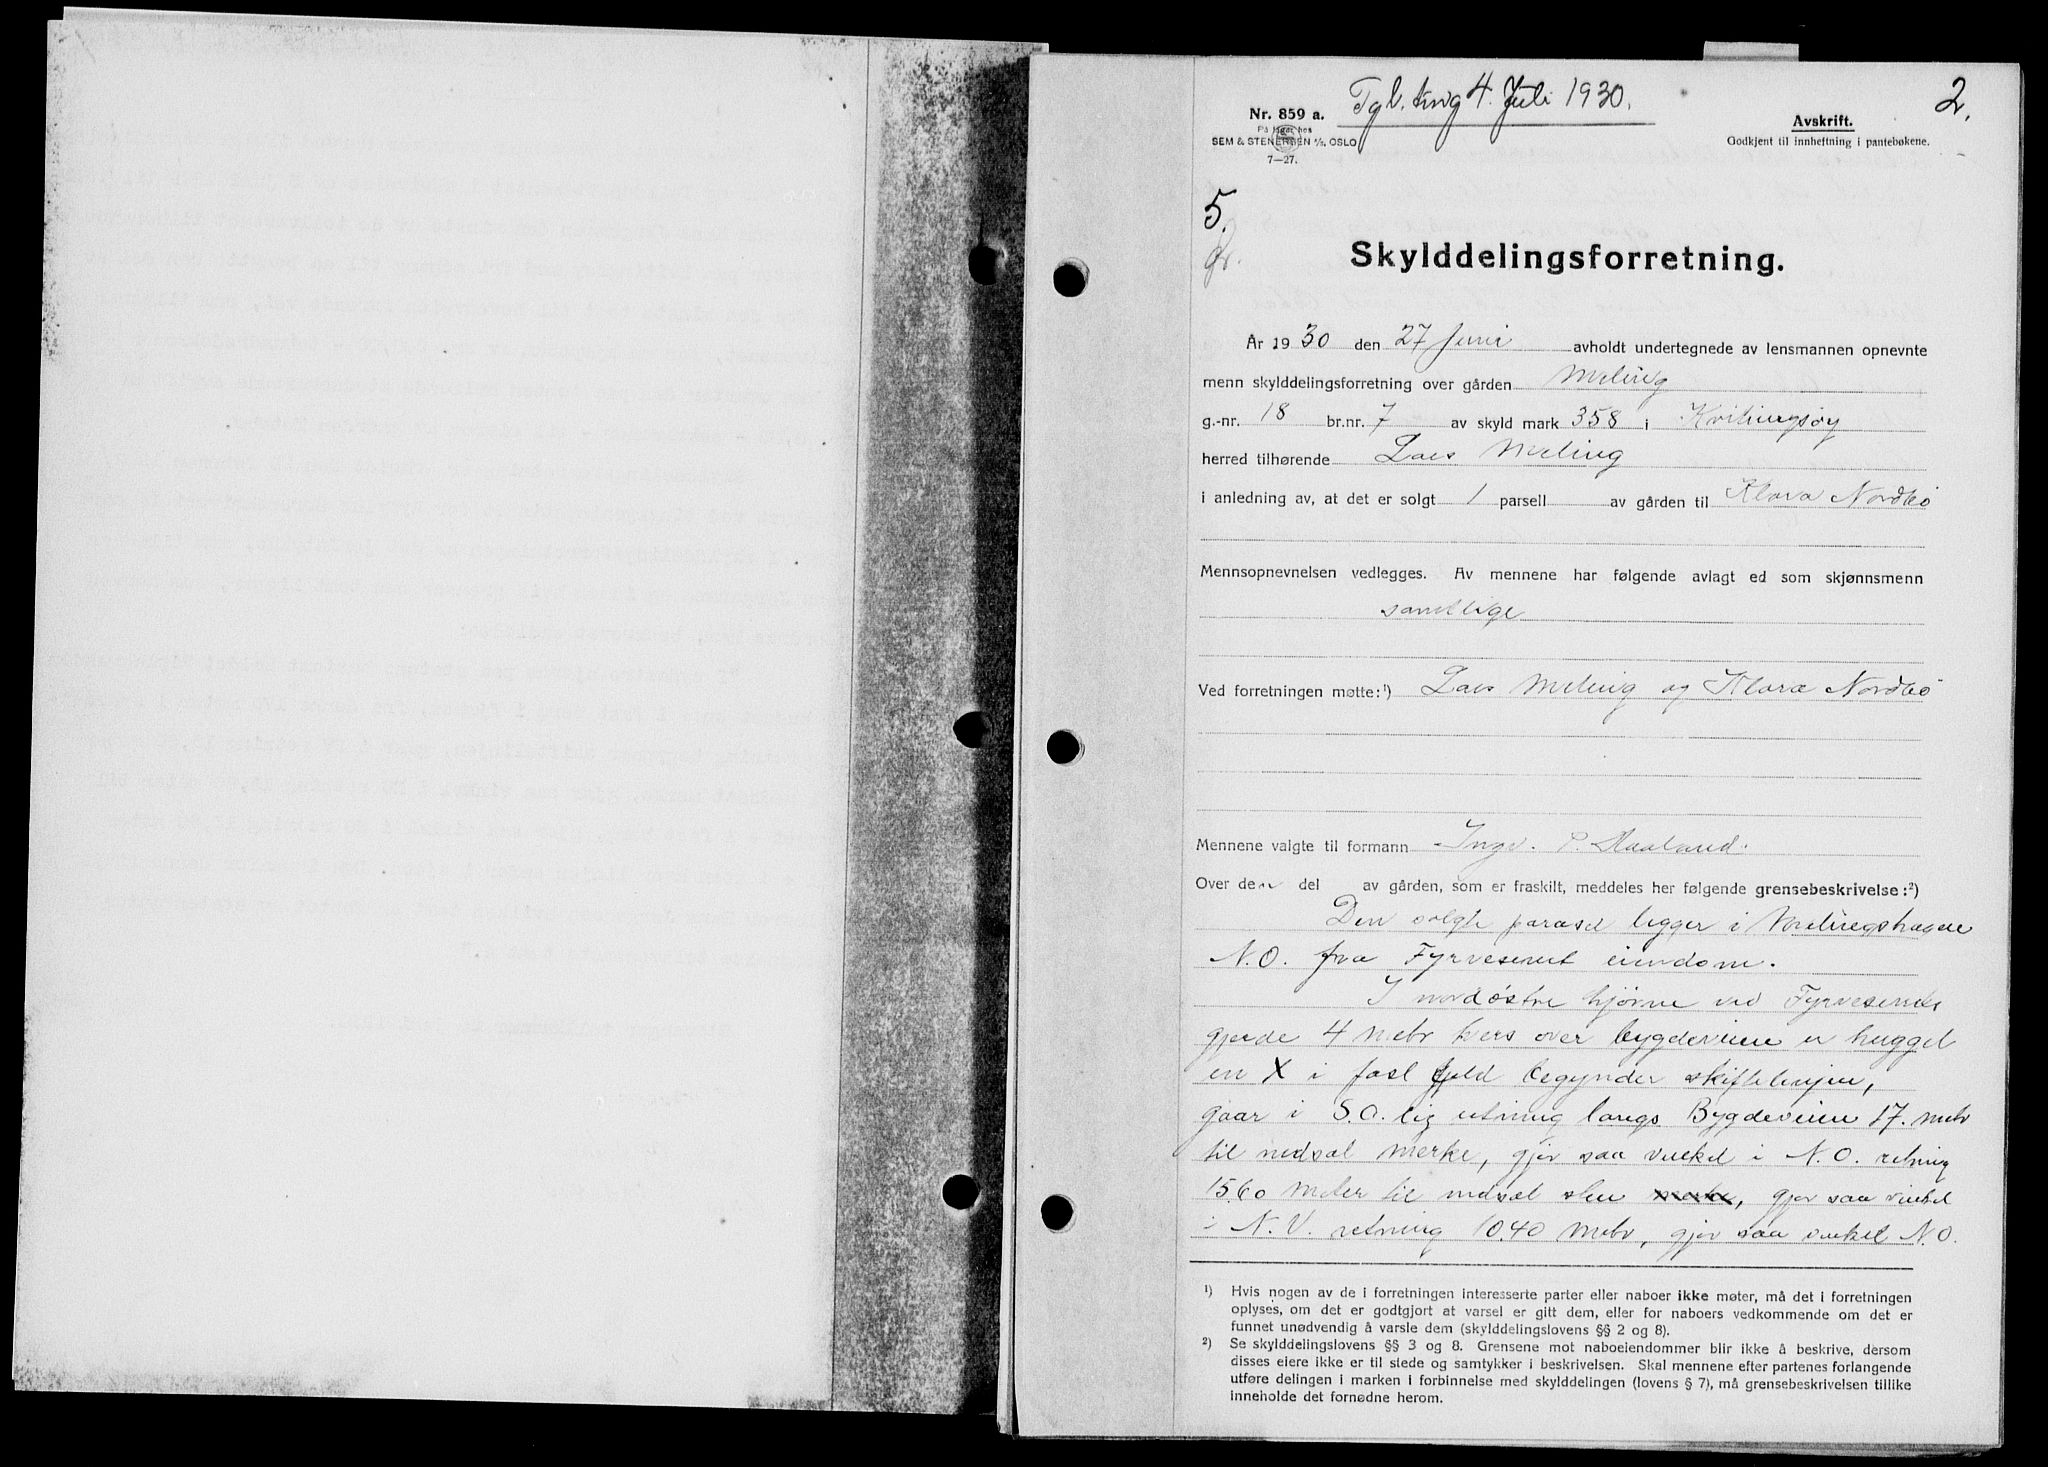 Tgl. 4. Juli 1930.
2.
Nr. 859 a.
På lager hos
SEM & STENERSEN A/S, OSLO
7—27.
Avskrift.
Godkjent til innheftning i pantebøkene.
5.
Skylddelingsforretning.
År 1930 den 27 Juni avholdt undertegnede av lensmannen opnevnte
menn skylddelingsforretning over gården Meling
g.-nr. 18 br.nr. 7 av skyld mark 358 i Kvitingsøy
herred tilhørende Lars Meling
i anledning av, at det er solgt 1 parsell av gården til Klara Nordbø
Mennsopnevnelsen vedlegges. Av mennene har følgende avlagt ed som skjønnsmenn
samtlige
Ved forretningen møtte:¹) Lars Meling og Klara Nordbø
Mennene valgte til formann Ingv. P. Haaland.
Over den del av gården, som er fraskilt, meddeles her følgende grensebeskrivelse:²)
Den solgte parsel ligger i Melingshagen
N.O. fra Fyrvesenet eiendom.
I nordøstre hjørne ved Fyrvesenets
gjerde 4 meter tvers over bygdeveien er hugget
en X i fast fjeld begynder skiftelinjen,
gaar i S.O. lig retning langs Bygdeveien 17. meter
til nedsat merke, gjør saa vinkel i N.O. retning
15.60 meter til nedsat sten merke, gjør saa vinkel
i N.V. retning 10.40 meter, gjør saa vinkel N.O.
¹) Hvis nogen av de i forretningen interesserte parter eller naboer ikke møter, må det i forretningen
oplyses, om det er godtgjort at varsel er gitt dem, eller for naboers vedkommende om det er
funnet unødvendig å varsle dem (skylddelingslovens §§ 2 og 8).
²) Se skylddelingslovens §§ 3 og 8. Grensene mot naboeiendommer blir ikke å beskrive, dersom
disses eiere ikke er til stede og samtykker i beskrivelsen. Skal mennene efter partenes forlangende
utføre delingen i marken i forbinnelse med skylddelingen (lovens § 7), må grensebeskrivelsen tillike
inneholde det fornødne herom.